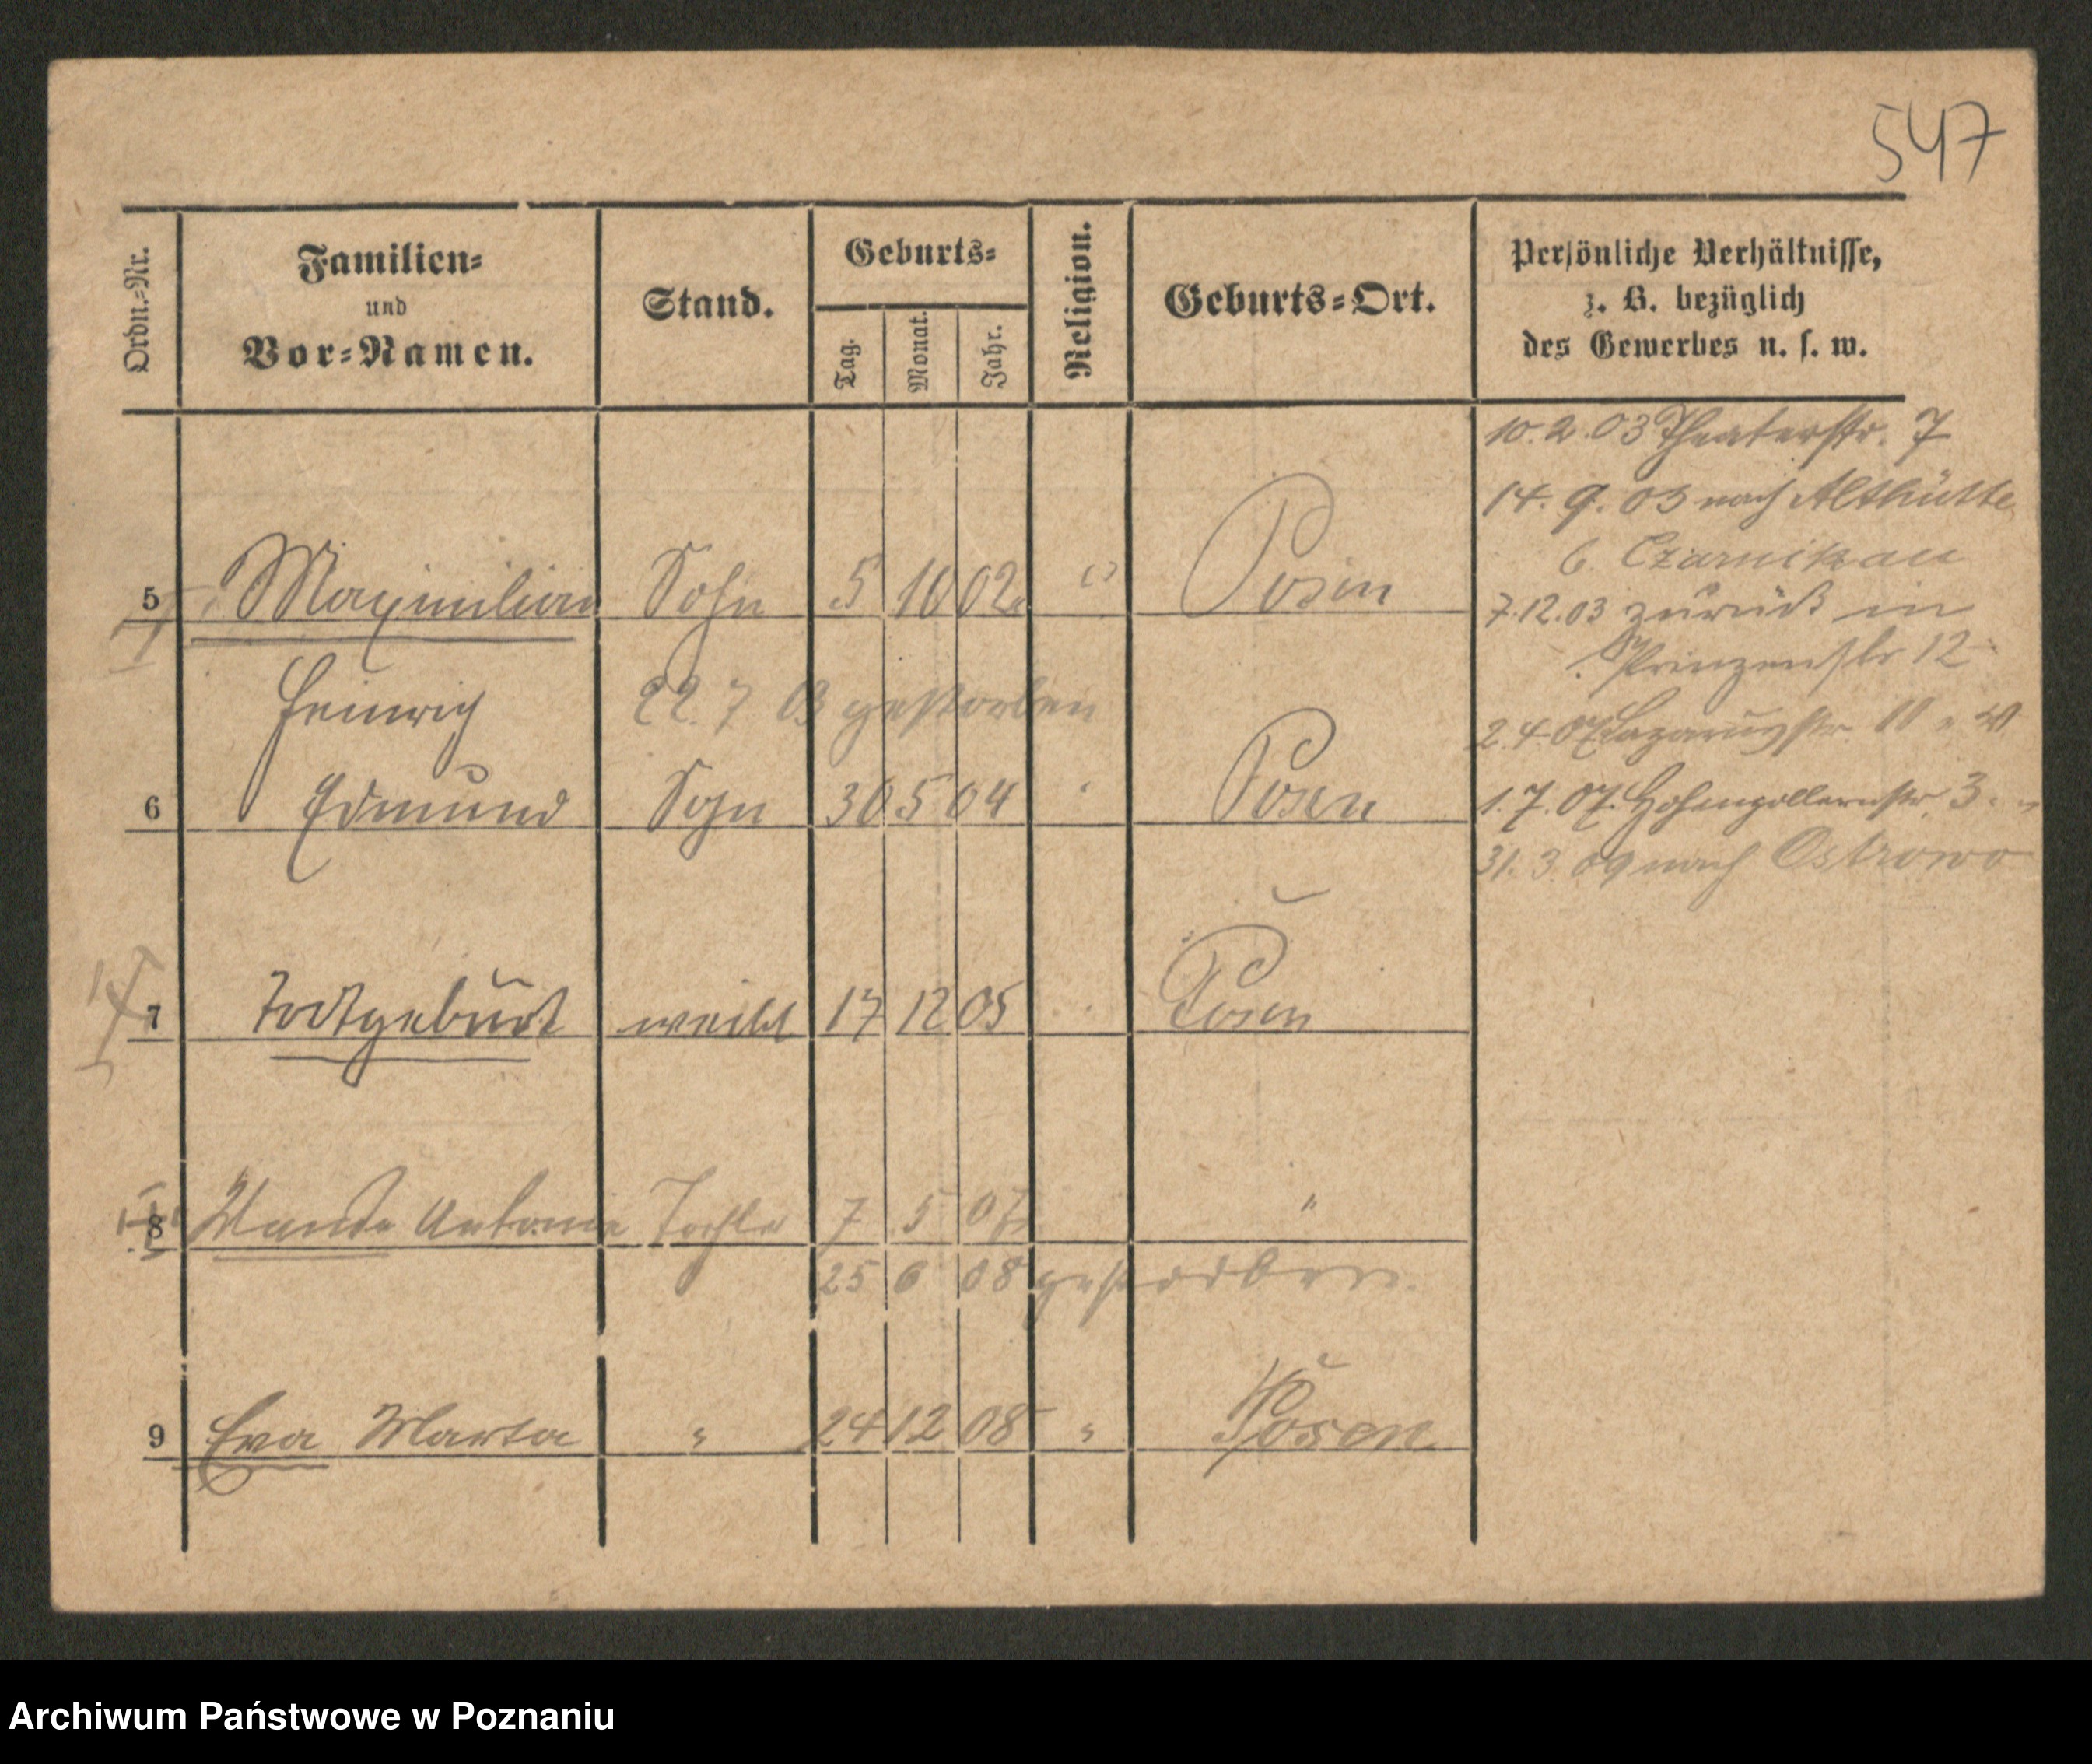 547
Ordn.-Nr.
Familien-
und
Vor-Namen.
Stand.
Geburts-
Tag.
Monat.
Jahr.
Religion.
Geburts-Ort.
Persönliche Verhältnisse,
z. B. bezüglich
des Gewerbes u. s. w.
10.2.03 Theaterstr. 7
14.9.03 nach Althütte
b. Czarnikau
7.12.03 zurück in
Prinzenstr 12
2.4.07 Lazarusstr.
1.7.07. Hohenzollernstr. 3
31.3.09 nach Ostrowo
5 Maximilian Sohn 5 10 02 " Posen
22. 7 03 gestorben
Heinrich
6 Edmund Sohn 30 5 04 " Posen
7 Todtgeburt weibl 17 12 05 Posen
8 Wanda Antonie Tochter 7 5 07 "
25 6 08 gestorben.
9 Eva Marta " 24 12 08 " Posen
Archiwum Państwowe w Poznaniu